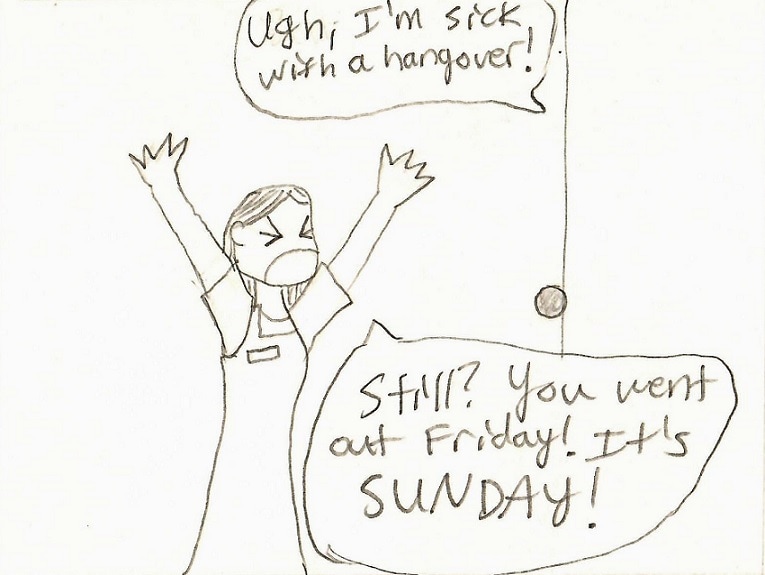 Ugh, I'm sick
with a hangover!
Still? You went
out Friday! It's
SUNDAY!